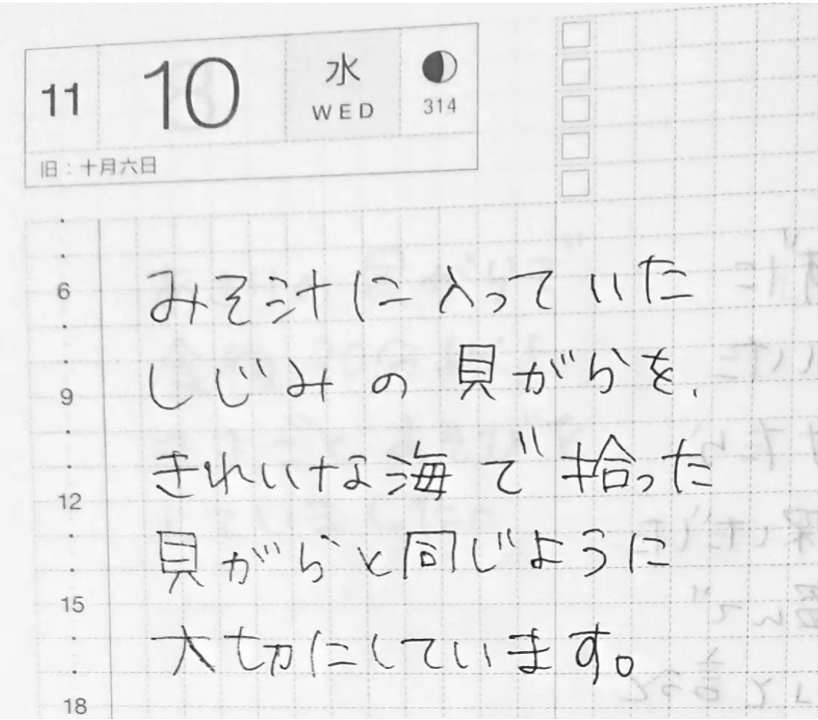 11 10 水 WED 314
旧：十月六日
6
みそ汁に入っていた
9
しじみの貝がらを、
12
きれいな海で拾った
貝がらと同じように
15
大切にしています。
18